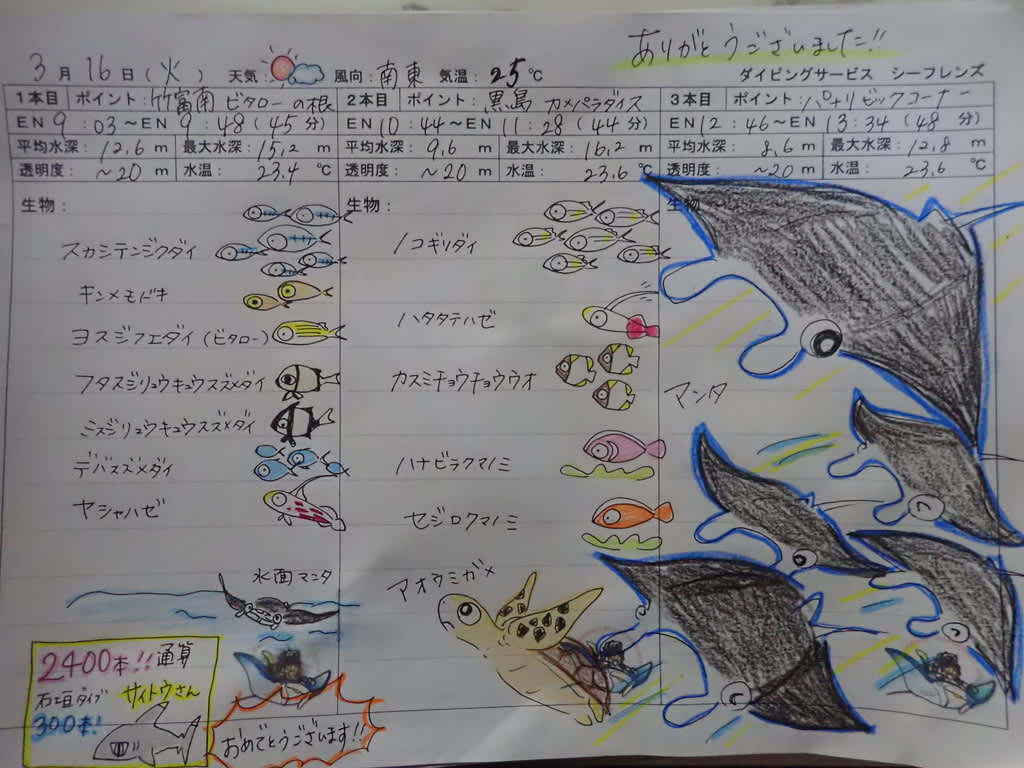 ありがとうございました!!
3月16日(火) 天気: 風向:南東 気温:25℃ ダイビングサービス シーフレンズ
1本目 ポイント:竹富南 ビタローの根
EN 9:03~EN 9:48(45分)
平均水深:12.6m 最大水深:15.2m
透明度:~20m 水温:23.4℃
生物:
スカシテンジクダイ
キンメモドキ
ヨスジフエダイ(ビタロー)
フタスジリュウキュウスズメダイ
ミスジリュウキュウスズメダイ
デバスズメダイ
ヤシャハゼ
水面マンタ
2400本!!通算
石垣ダイブ サイトウさん
300本!
おめでとうございます!!
2本目 ポイント:黒島 カメパラダイス
EN 10:44~EN 11:28(44分)
平均水深:9.6m 最大水深:16.2m
透明度:~20m 水温:23.6℃
生物:
ノコギリダイ
ハタタテハゼ
カスミチョウチョウウオ
ハナビラクマノミ
セジロクマノミ
アオウミガメ
3本目 ポイント:パナリ ビックコーナー
EN 12:46~EN 13:34(48分)
平均水深:8.6m 最大水深:12.8m
透明度:~20m 水温:23.6℃
生物
マンタ